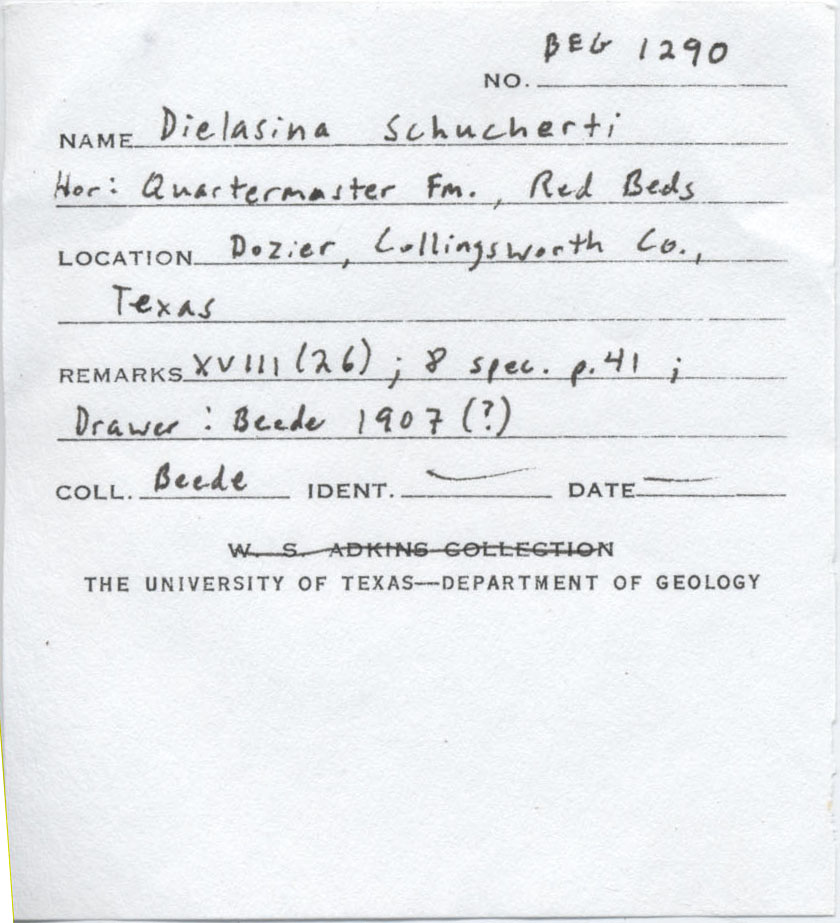 BEG 1290
NO.
NAME Dielasina Schucherti
Hor: Quartermaster Fm., Red Beds
LOCATION Dozier, Collingsworth Co.,
Texas
REMARKS XVIII (26) ; 8 spec. p.41 ;
Drawer : Beede 1907 (?)
COLL. Beede IDENT. — DATE —
W. S. ADKINS COLLECTION
THE UNIVERSITY OF TEXAS—DEPARTMENT OF GEOLOGY